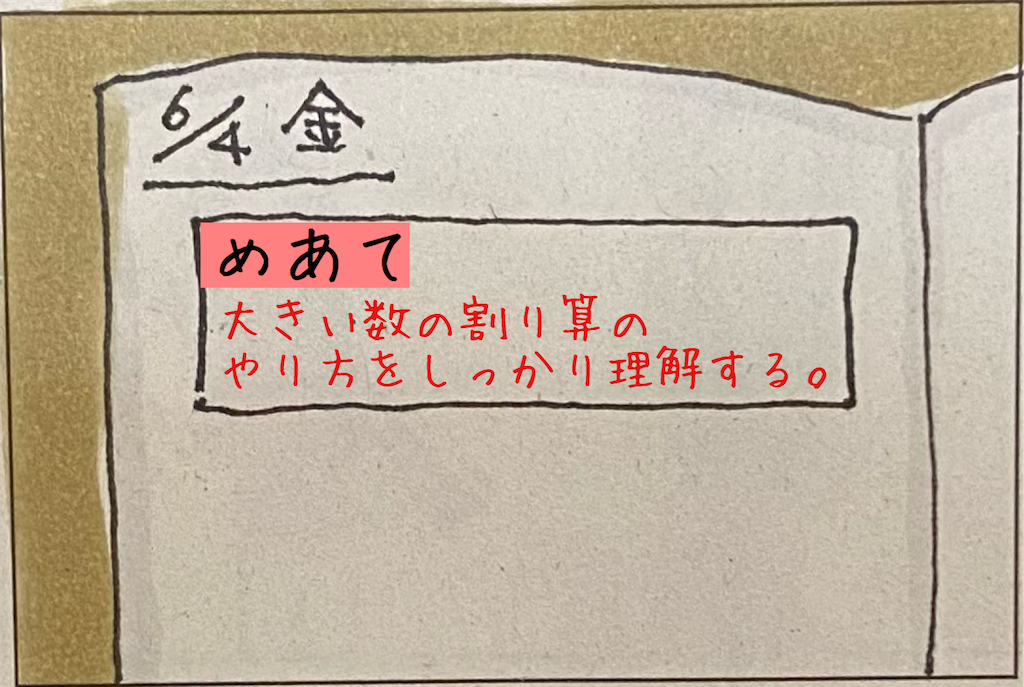 6/4 金
めあて
大きい数の割り算の
やり方をしっかり理解する。